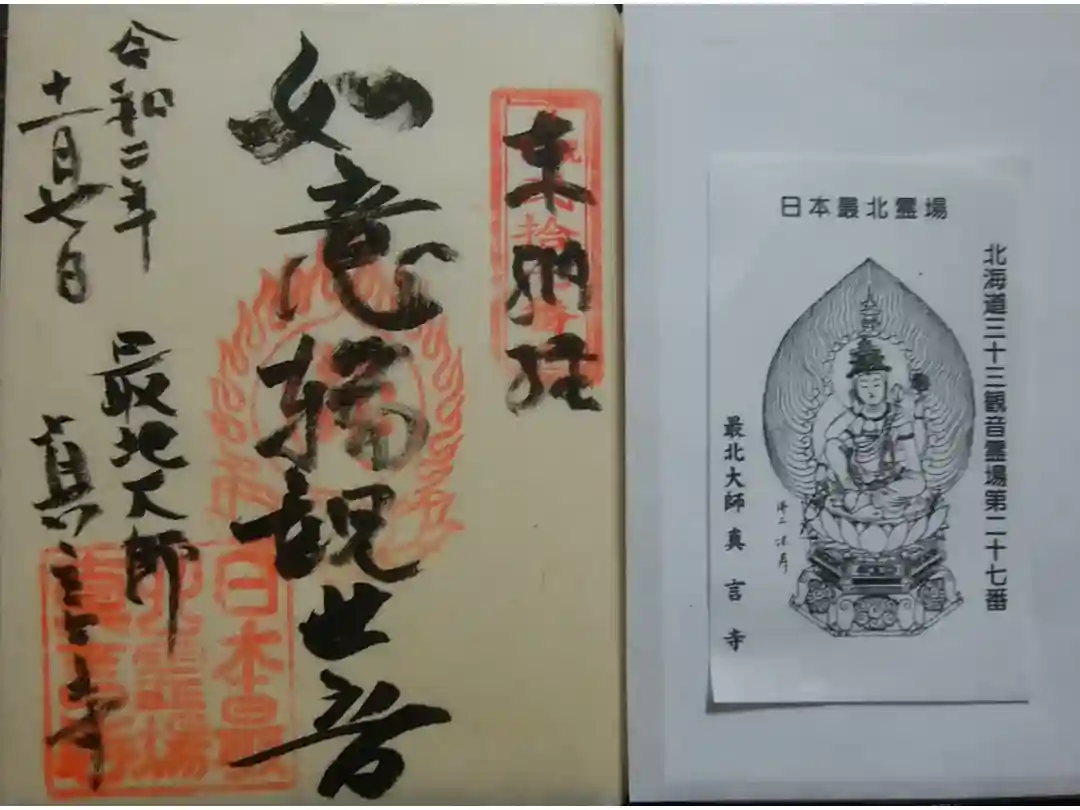 奉納経
如意輪観世音
令和二年
十一月七日
最北大師
真言寺
日本最
北霊場
真言寺
日本最北霊場
北海道三十三観音霊場第二十七番
最北大師 真言寺